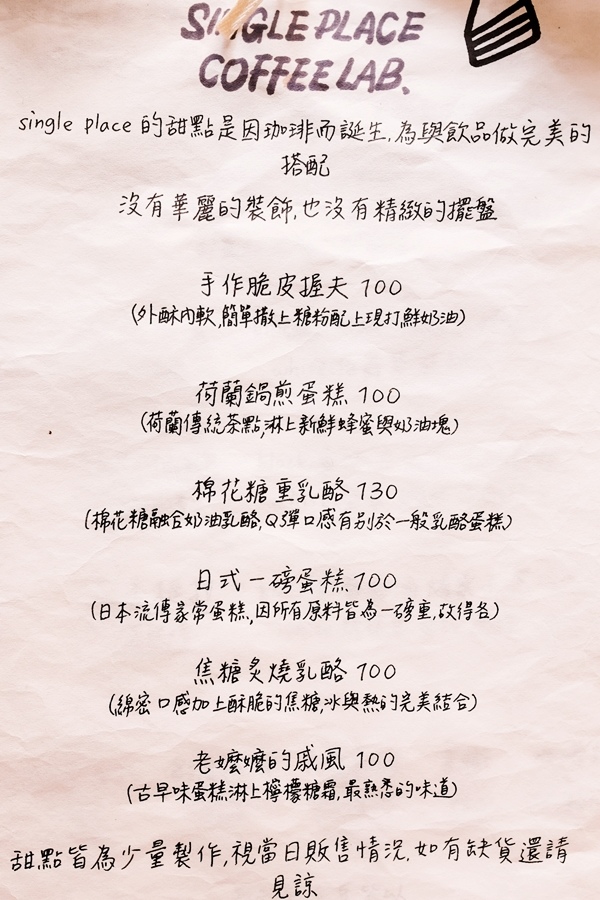 SINGLE PLACE
COFFEE LAB.
single place 的甜點是因珈琲而誕生,為與飲品做完美的
搭配
沒有華麗的裝飾,也沒有精緻的擺盤
手作脆皮握夫 100
(外酥內軟,簡單撒上糖粉配上現打鮮奶油)
荷蘭鍋煎蛋糕 100
(荷蘭傳統茶點,淋上新鮮蜂蜜與奶油塊)
棉花糖重乳酪 130
(棉花糖融合奶油乳酪,Q彈口感有別於一般乳酪蛋糕)
日式一磅蛋糕 100
(日本流傳家常蛋糕,因所有原料皆為一磅重,故得名)
焦糖炙燒乳酪 100
(綿密口感加上酥脆的焦糖,冰與熱的完美結合)
老嬤嬤的戚風 100
(古早味蛋糕淋上檸檬糖霜,最熟悉的味道)
甜點皆為少量製作,視當日販售情況,如有缺貨還請
見諒